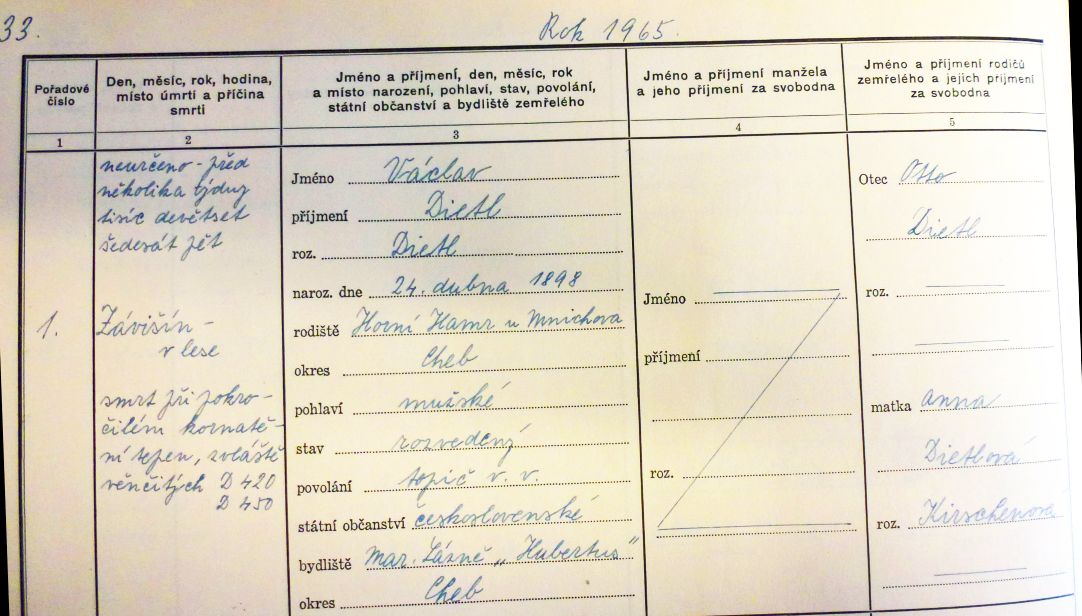 33.
Rok 1965.
Pořadové
číslo
Den, měsíc, rok, hodina,
místo úmrtí a příčina
smrti
Jméno a příjmení, den, měsíc, rok
a místo narození, pohlaví, stav, povolání,
státní občanství a bydliště zemřelého
Jméno a příjmení manžela
a jeho příjmení za svobodna
Jméno a příjmení rodičů
zemřelého a jejich příjmení
za svobodna
1
2
3
4
5
1.
neurčeno - před
několika týdny
tisíc devětset
šedesát pět
Závišín -
v lese
smrt při pokro-
čilém kornatě-
ní tepen, zvláště
věnčitých D 420
D 450
Jméno Václav
příjmení Dietl
roz. Dietl
naroz. dne 24. dubna 1898
rodiště Horní Hamr u Mnichova
okres Cheb
pohlaví mužské
stav rozvedený
povolání topič v. v.
státní občanství československé
bydliště Mar. Lázně „Hubertus"
okres Cheb
Jméno
příjmení
roz.
Otec Otto
Dietl
roz.
matka Anna
Dietlová
roz. Kirschenová